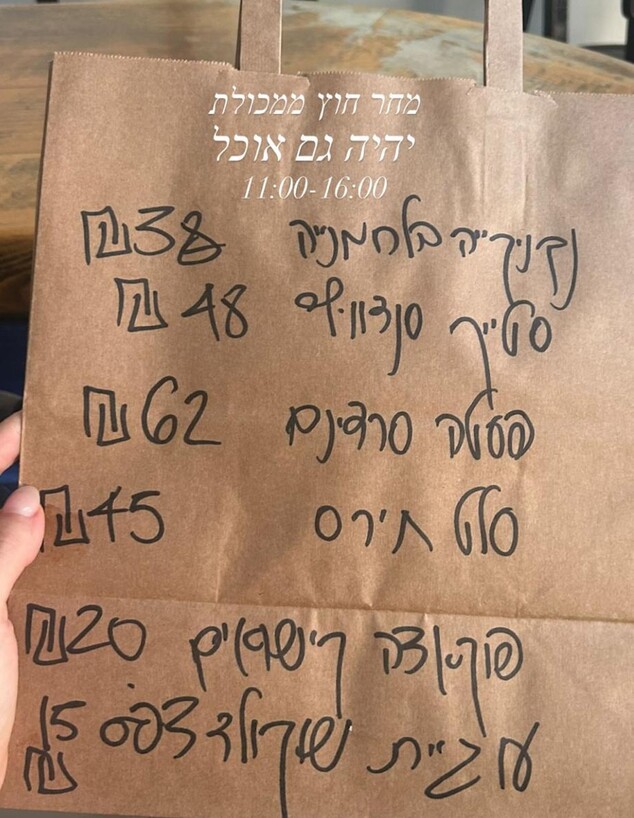 מחר חוץ ממכולת
יהיה גם אוכל
11:00-16:00
נקניקייה בלחמנייה 38₪
סטייק סנדוויץ׳ 48₪
פעלה סרדינים 62₪
סלט תירס 45₪
פוקאצה קישואים 20₪
עוגיית שוקולד צ׳יפס 15₪